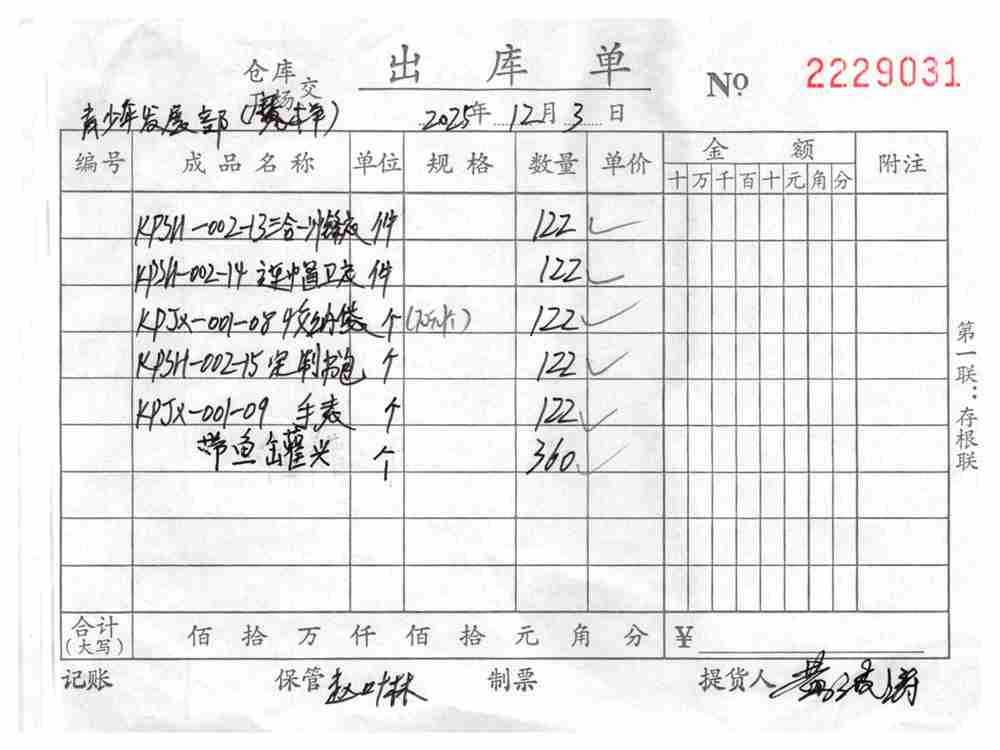 出库单
仓库
市场 交
№ 2229031
青少年发展部
2025年12月3日
编号 成品名称 单位 规格 数量 单价 金额 附注
十万千百十元角分
KPSH-002-13三合一冲锋衣 件 122
KPSH-002-14 连帽卫衣 件 122
KPJX-001-08收纳袋 个 122
KPSH-002-15定制书包 个 122
KPJX-001-09 手表 个 122
带鱼罐头 个 360
第一联：存根联
合计(大写) 佰拾万仟佰拾元角分 ￥
记账 保管 赵叶林 制票 提货人